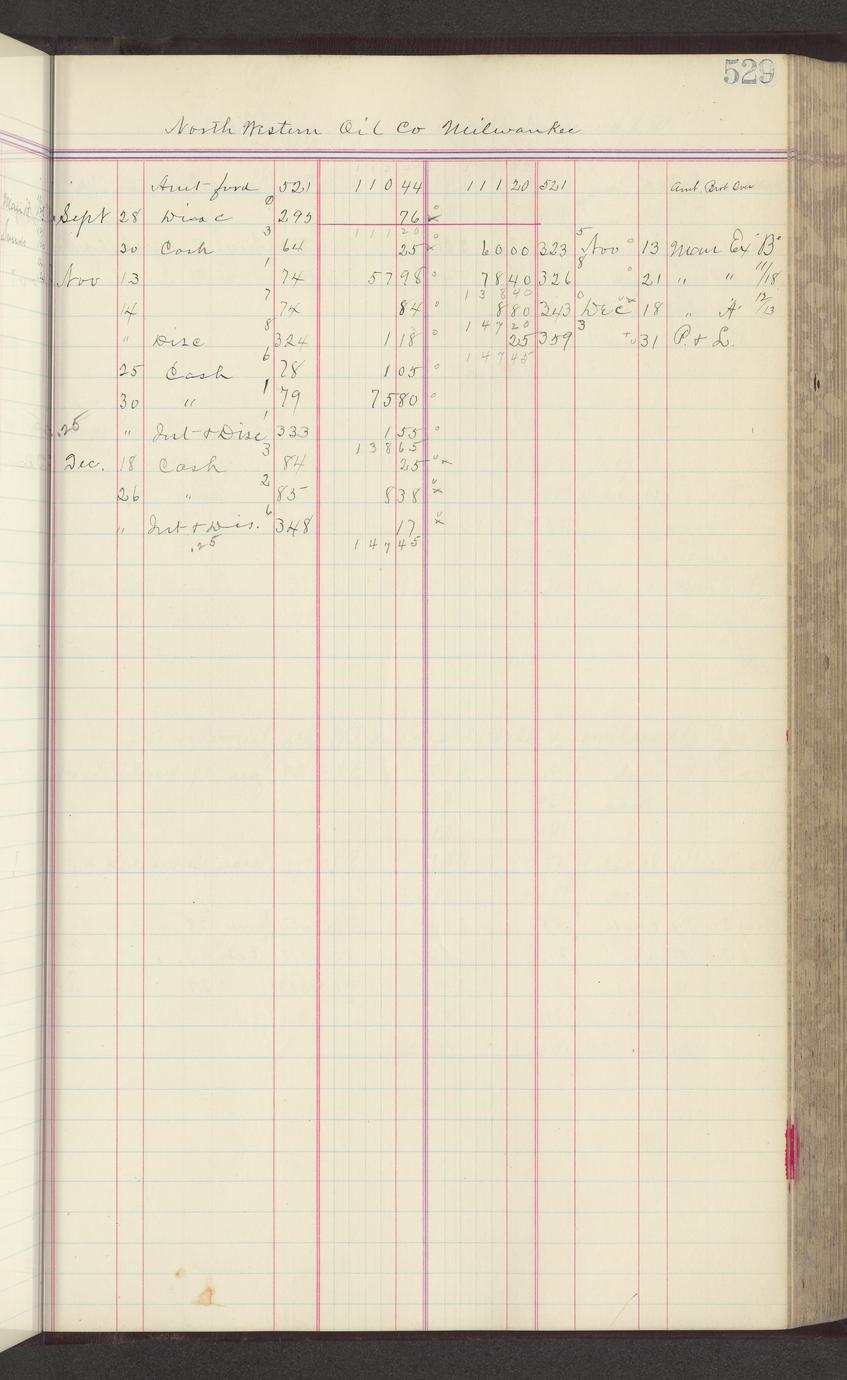 529
North Western Oil Co Milwaukee
Amt ford 521 110 44 111 20 521 Amt. Brot Over
Sept 28 Disc 295 76
111 20
30 Cash 64 25 60 00 323 Nov 13 Man Ex B
Nov 13 74 57 98 78 40 326 21 " " 11/18
138 40
14 74 84 8 80 343 Dec 18 " A 12/13
147 20
" Disc 324 1 18 25 359 31 P. & L.
147 45
25 Cash 78 1 05
30 " 79 75 80
.25 " Int & Disc 333 1 55
138 65
Dec. 18 Cash 84 25
26 " 85 8 38
" Int & Dis. 348 17
.25 147 45